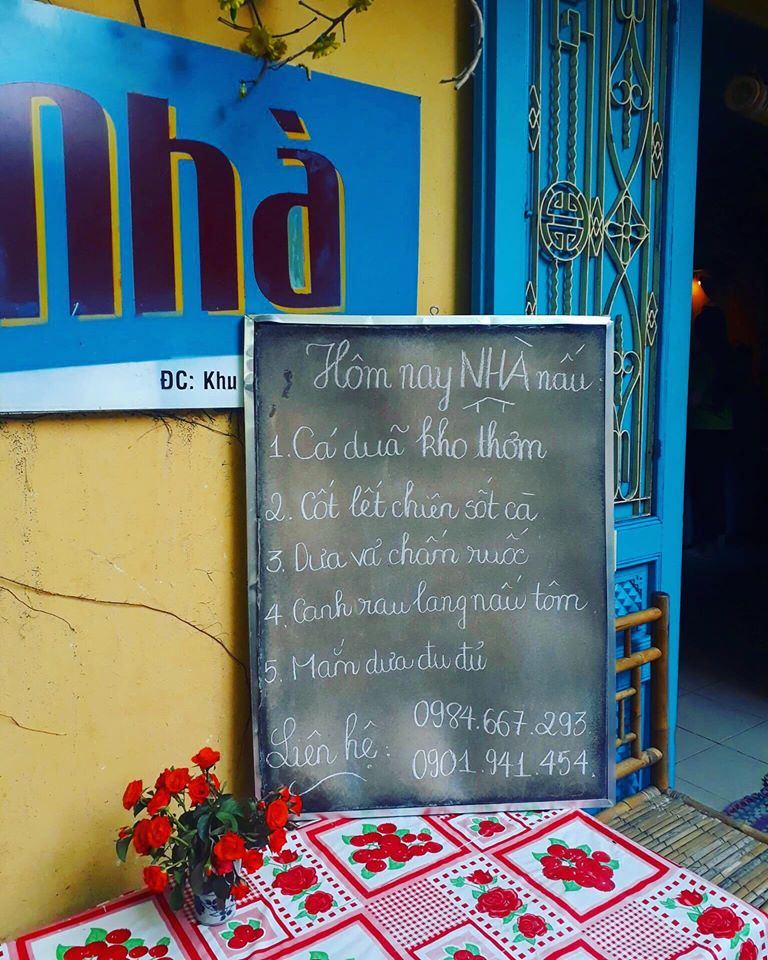 Nhà
ĐC: Khu
Hôm nay NHÀ nấu:
1. Cá duã kho thơm
2. Cốt lết chiên sốt cà
3. Dưa vả chấm ruốc
4. Canh rau lang nấu tôm
5. Mắm dưa đu đủ
Liên hệ: 0984.667.293
0901.941.454